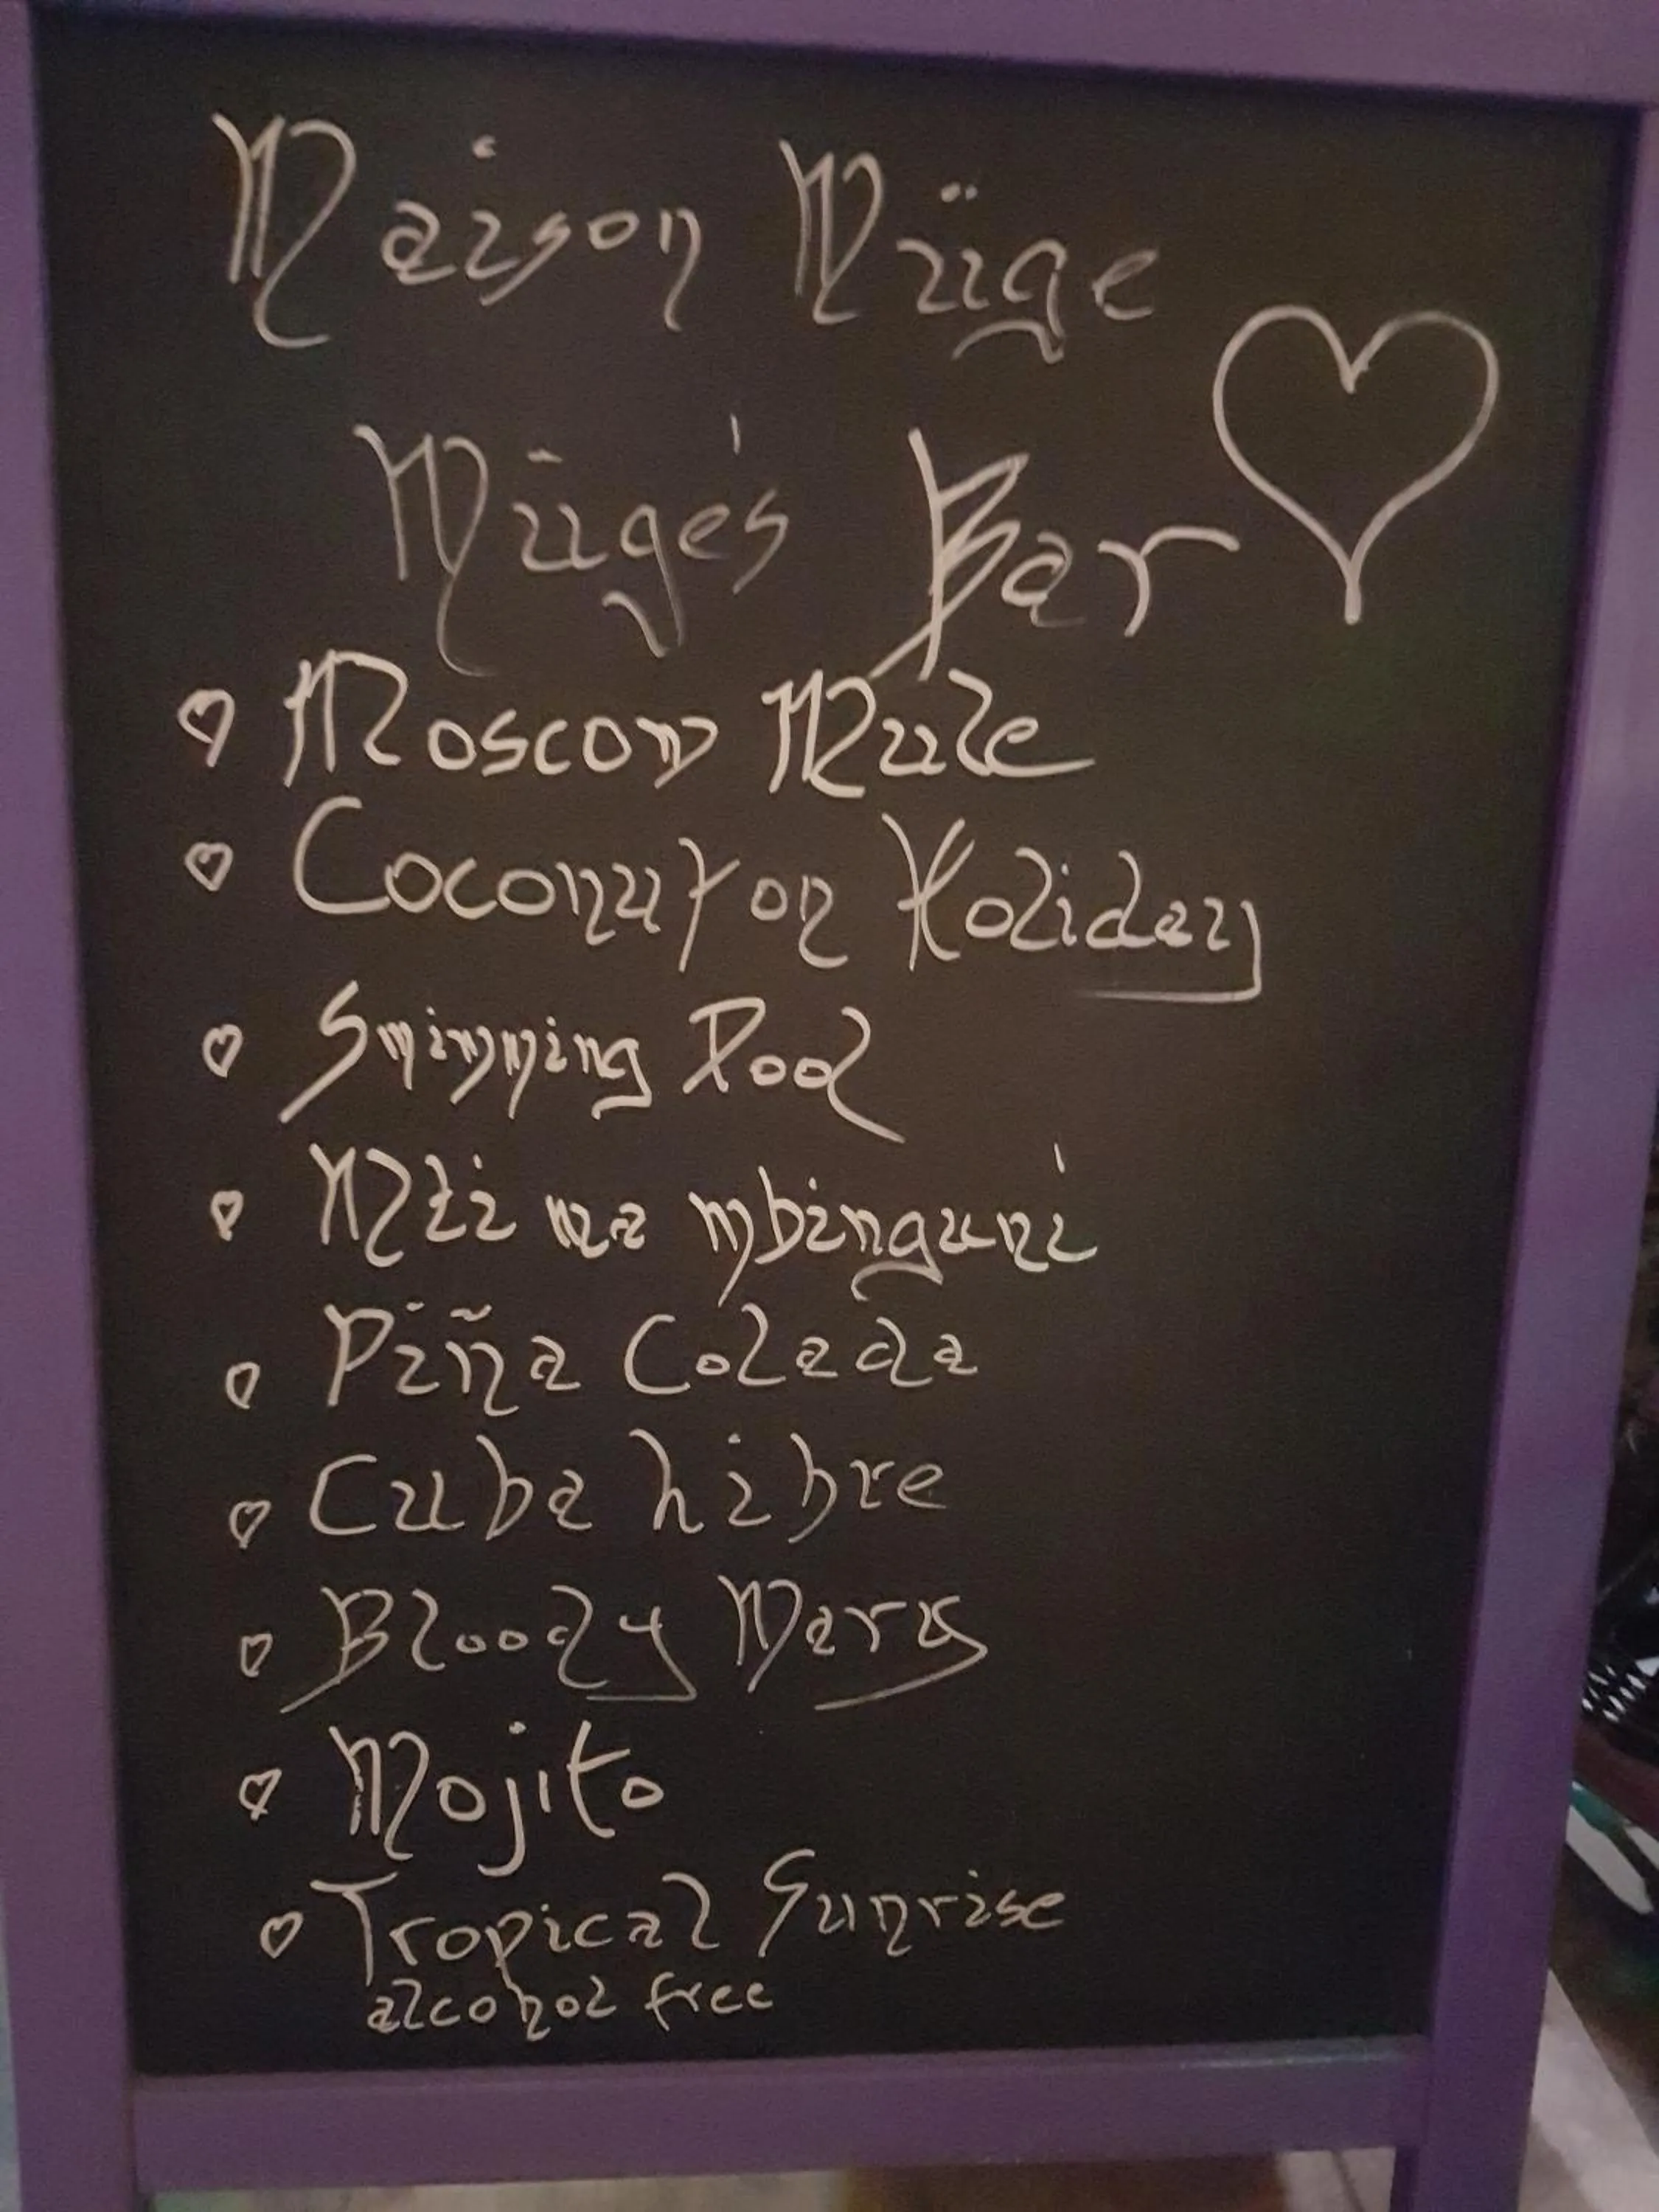 Maison Müge
Müge's Bar
Moscow Mule
Coconut on Holiday
Swimming Pool
Mti wa mbinguni
Piña Colada
Cuba Libre
Bloody Mary
Mojito
Tropical Sunrise
alcohol free